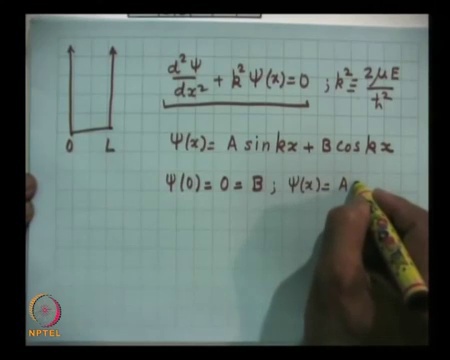 d²Ψ/dx² + k² Ψ(x) = 0 ; k² = 2μE/ħ²
0 L
Ψ(x) = A sin kx + B cos kx
Ψ(0) = 0 = B ; Ψ(x) = A
NPTEL